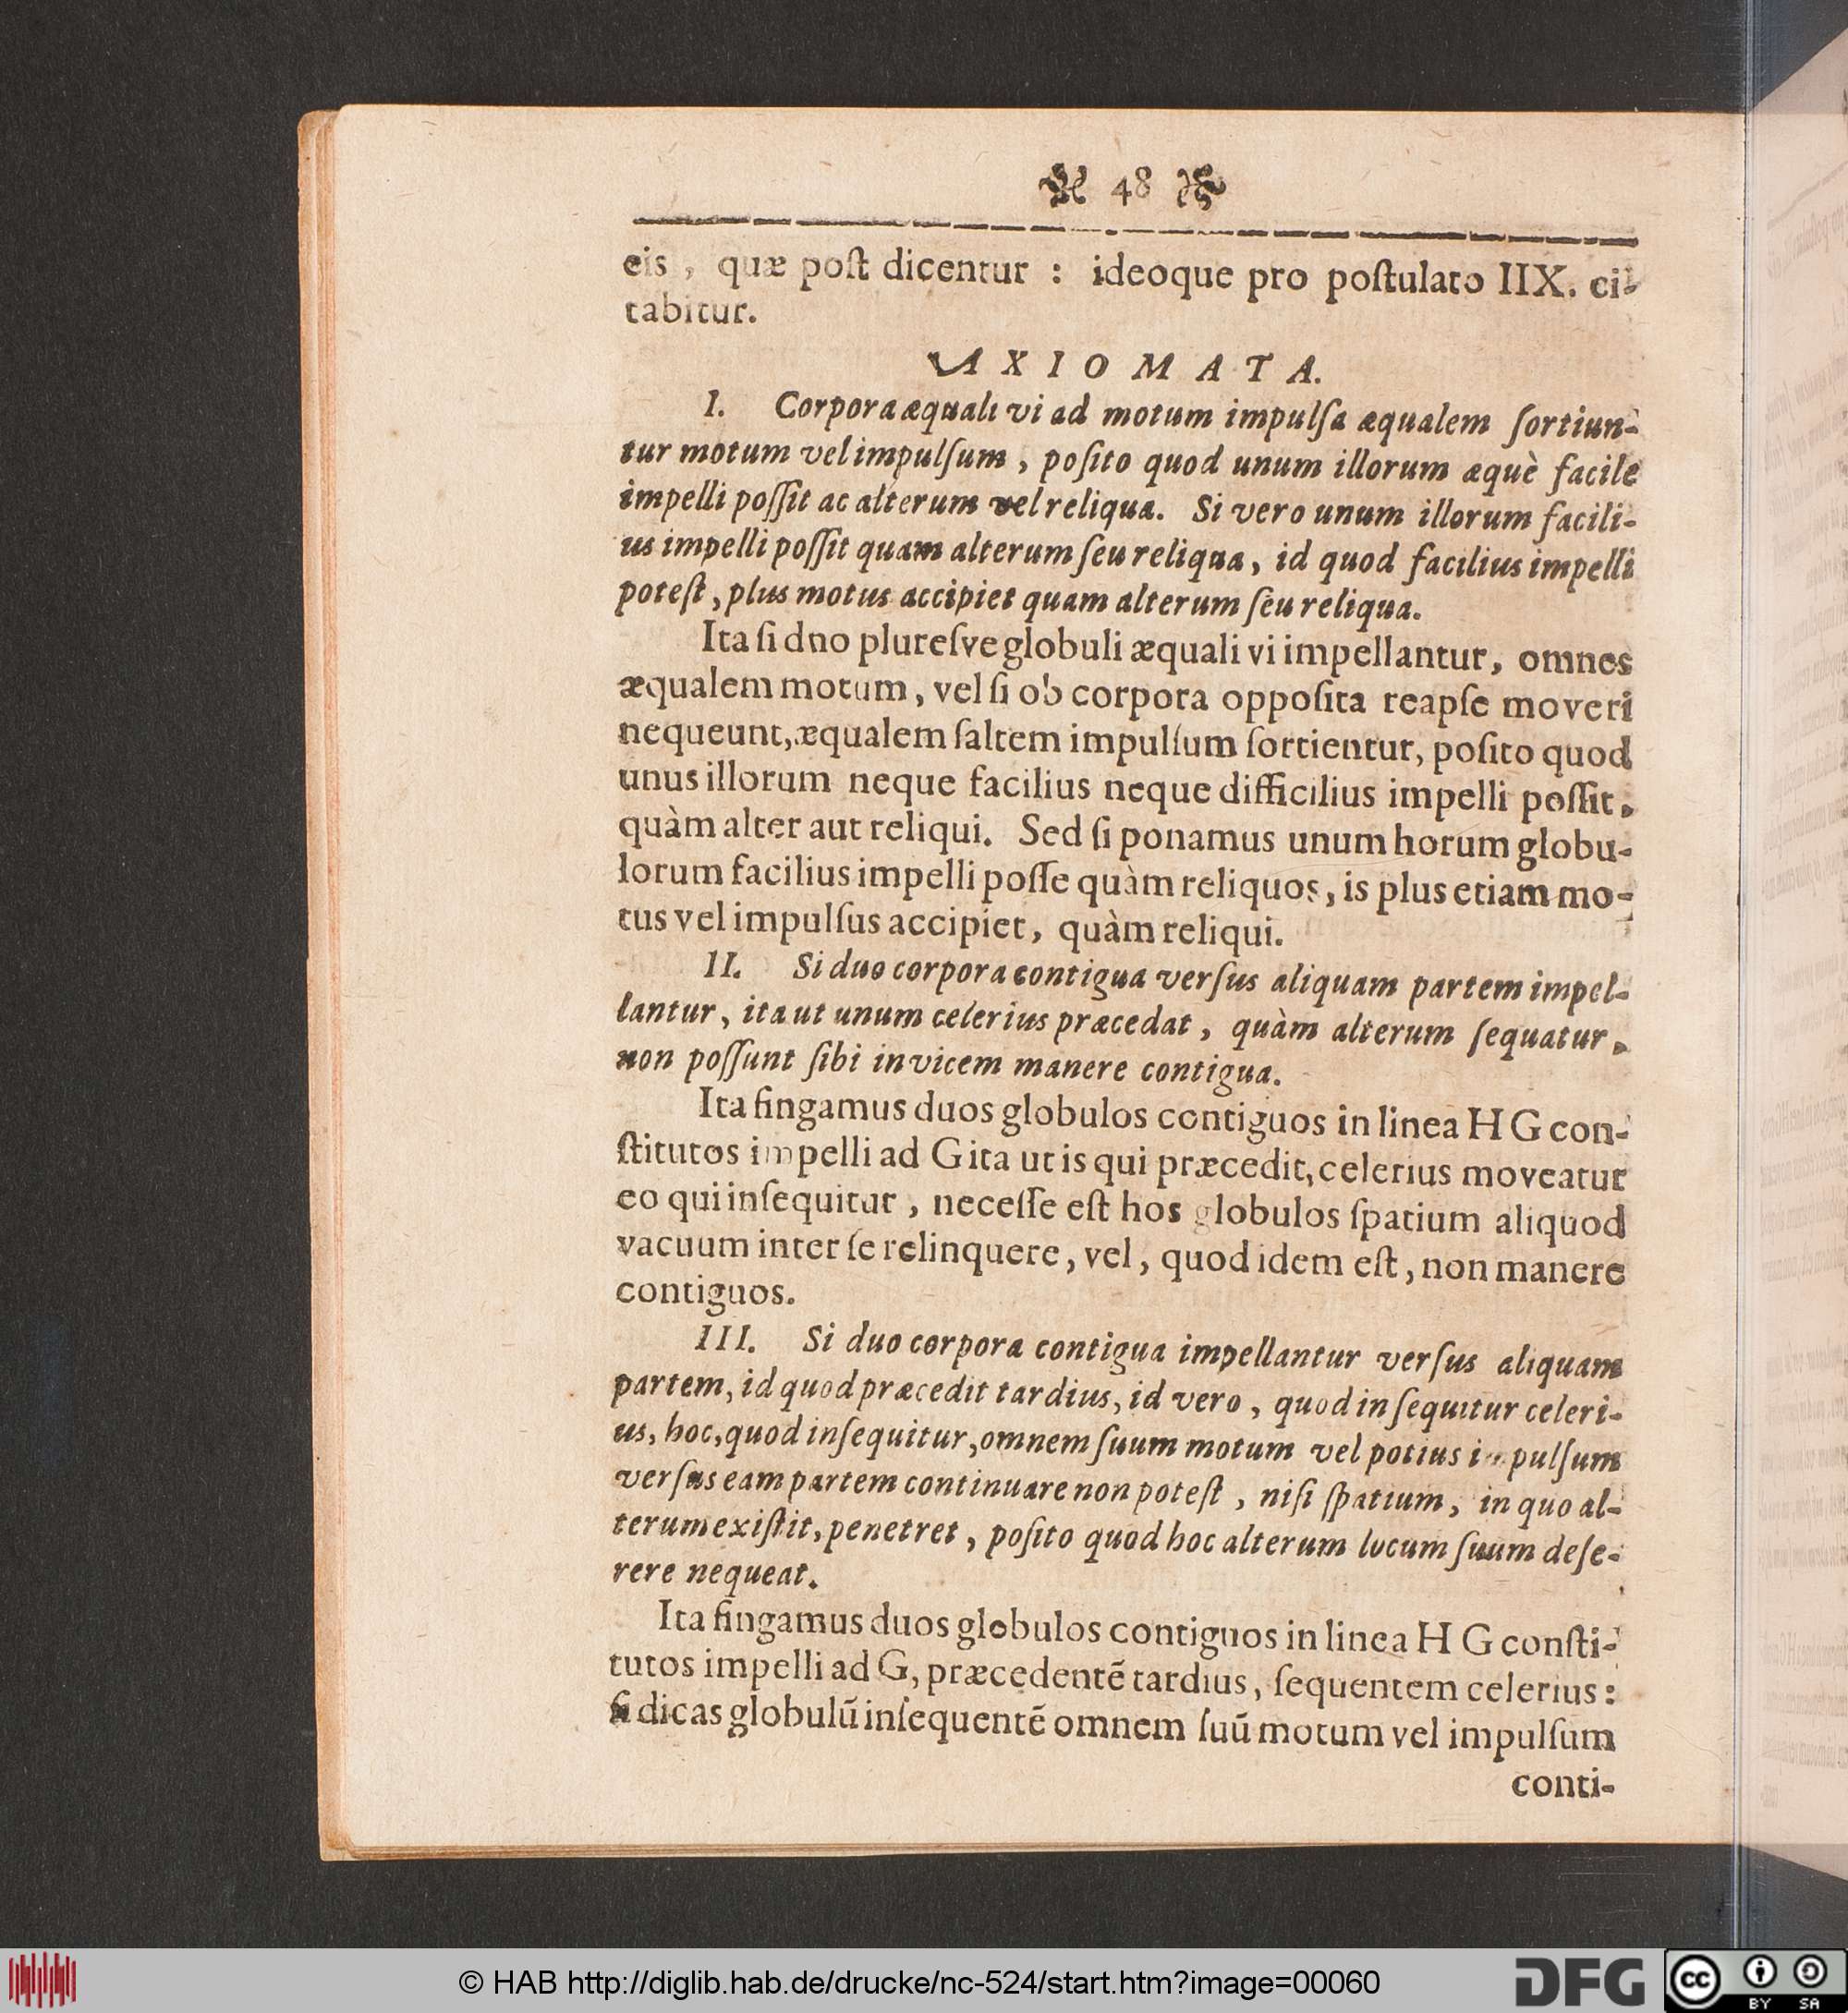 48
eis, quæ poſt dicentur : ideoque pro poſtulato IIX. ci-
tabitur.
AXIOMATA.
I. Corpora æquali vi ad motum impulſa æqualem ſortiun-
tur motum vel impulſum, poſito quod unum illorum æquè facile
impelli poſſit ac alterum vel reliqua. Si vero unum illorum facili-
us impelli poſſit quam alterum ſeu reliqua, id quod facilius impelli
poteſt, plus motus accipiet quam alterum ſeu reliqua.
Ita ſi dno pluresve globuli æquali vi impellantur, omnes
æqualem motum, vel ſi ob corpora oppoſita reapſe moveri
nequeunt, æqualem ſaltem impulſum ſortientur, poſito quod
unus illorum neque facilius neque difficilius impelli poſſit,
quàm alter aut reliqui. Sed ſi ponamus unum horum globu-
lorum facilius impelli poſſe quàm reliquos, is plus etiam mo-
tus vel impulſus accipiet, quàm reliqui.
II. Si duo corpora contigua verſus aliquam partem impel-
lantur, ita ut unum celerius præcedat, quàm alterum ſequatur,
non poſſunt ſibi invicem manere contigua.
Ita fingamus duos globulos contiguos in linea H G con-
ſtitutos impelli ad G ita ut is qui præcedit, celerius moveatur
eo qui inſequitur, neceſſe eſt hos globulos ſpatium aliquod
vacuum inter ſe relinquere, vel, quod idem eſt, non manere
contiguos.
III. Si duo corpora contigua impellantur verſus aliquam
partem, id quod præcedit tardius, id vero, quod inſequitur celeri-
us, hoc, quod inſequitur, omnem ſuum motum vel potius impulſum
verſus eam partem continuare non poteſt, niſi ſpatium, in quo al-
terum exiſtit, penetret, poſito quod hoc alterum locum ſuum deſe-
rere nequeat.
Ita fingamus duos globulos contiguos in linea H G conſti-
tutos impelli ad G, præcedentẽ tardius, ſequentem celerius:
ſi dicas globulũ inſequentẽ omnem ſuũ motum vel impulſum
conti-
© HAB http://diglib.hab.de/drucke/nc-524/start.htm?image=00060
DFG
cc
BY SA